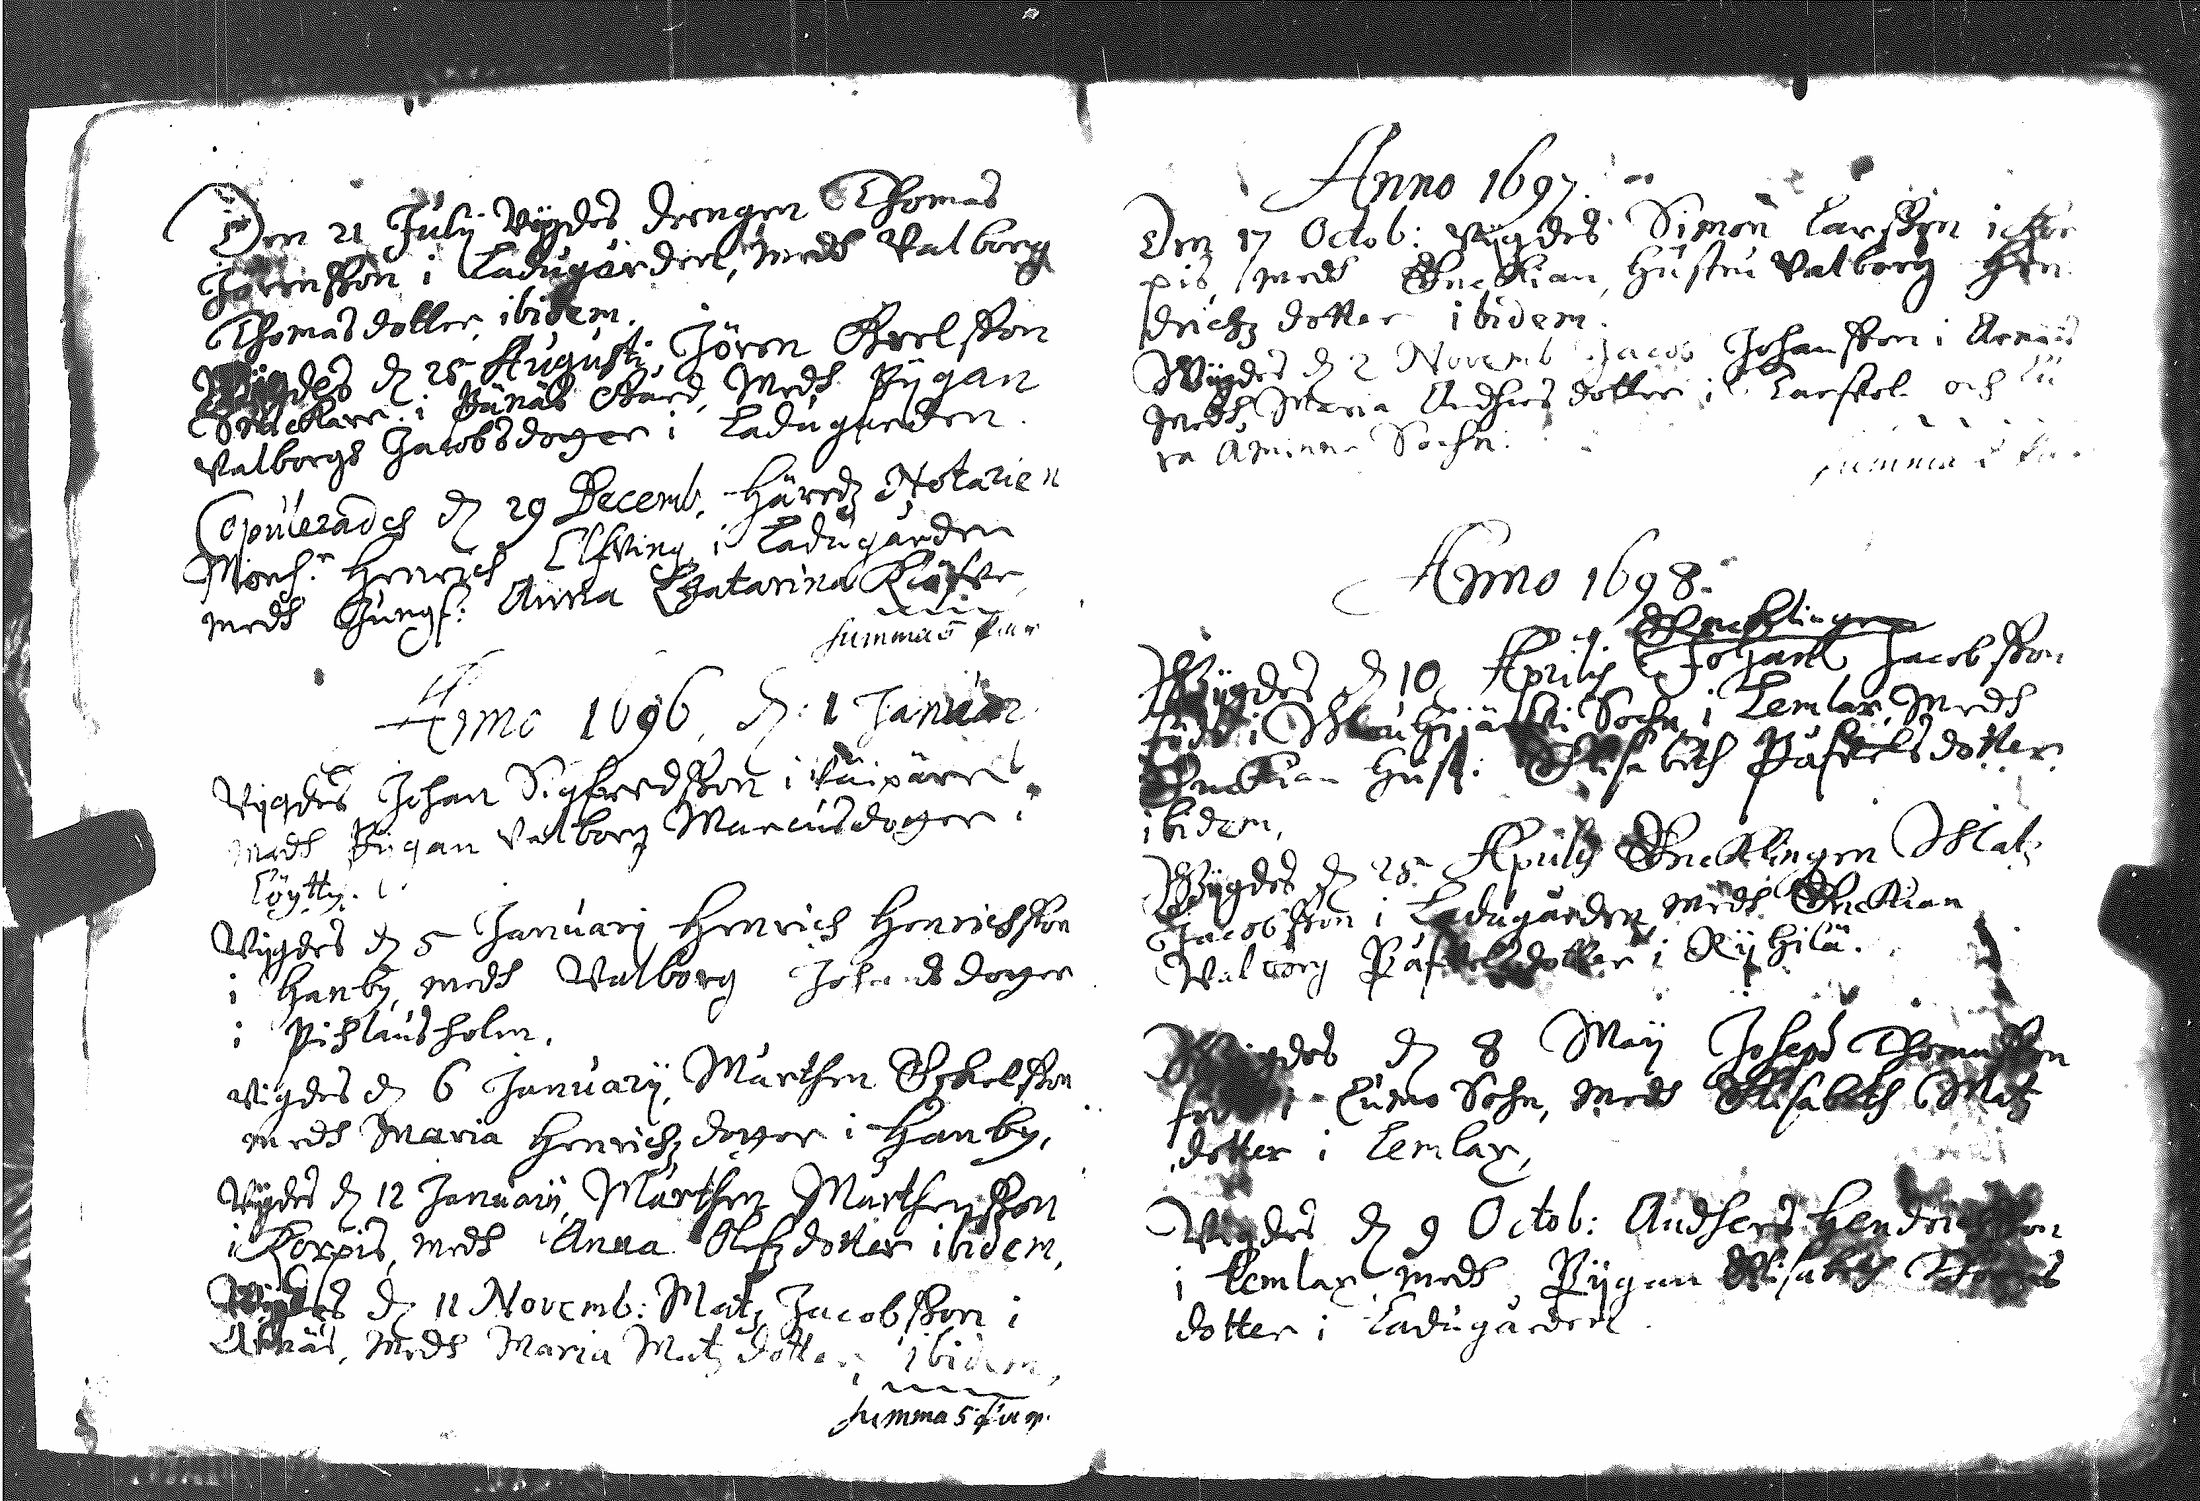 Den 21 Julij Vijgdes drengen Thomas
Jörensson i Ladugården, medh Valborg
Thomasdotter, ibidem.
Wijgdes d. 25 Augusti, Jören Grelsson
i Pänäs Gård, Medh Pijgan
Valborgs Jacobsdoter i Ladugården.
Copulerades d. 29 Decemb. Häredz Notarien
Monsr. Henrich Elfving i Ladugården
medh Jungf. Anna Catarina
summa 5 Par
Anno 1696, d. 1 Januar
Vijgdes Johan Sigfredsson i
medh Pijgan Valborg Marcusdoter i
Löytty.
Vijgdes d. 5 Januarij Henrich Henrichsson
i Hanby, medh Valborg Johansdoter
i Pihlausholm.
Vigdes d. 6 Januarij, Marthen Eskelsson
medh Maria Henrichzdoter i Hanby,
Vijgdes d. 12 Januarij, Marthen Marthensson
i Korpis, medh Anna Olefzdotter ibidem,
Wijgdes d. 11 Novemb: Matz Jacobsson i
Arnäs, medh Maria Matzdotter, ibidem,
summa 5 Par
Anno 1697.
Den 17 Octob: Vijgdes Simon Larsson i Kor
pis, medh Enckian, Hustru Valborg Hen
drichz dotter ibidem.
Wijgdes d. 2 Novemb Jacob Johansson i Arnäs
medh Maria Andhersdotter i och Lu
ra Åminne Sochn.
summa 2 Par
Anno 1698.
Encklingen
Wijgdes d. 10 Aprilis Johan Jacobsson
född i Mouhijärvi Sochn, i Lemlax, Medh
Enckian Hust: Elisabeth Påfvelsdotter
ibidem,
Wijgdes d. 25 Aprilis Encklingen Matz
Jacobsson i Ladugården, medh Enckian
Walborg Påfvelsdotter i Rijhilä.
Wijgdes d. 8 Maij Joseph Thomasson
född i Cumo Sohn, medh Elisabeth Matz
dotter i Lemlax,
Vigdes d. 9 Octob: Andhers Hendrichsson
i Lemlax, medh Pijgan Elisabeth Thomas
dotter i Ladugården.